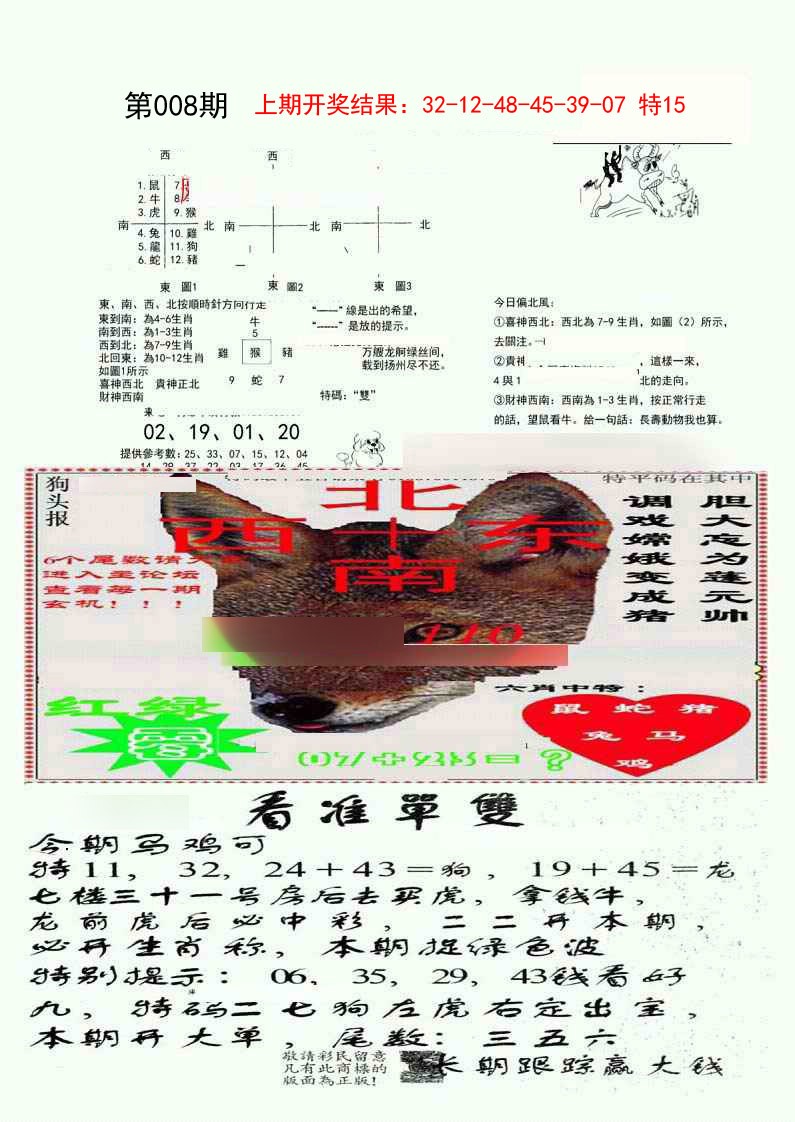 第008期 上期开奖结果：32-12-48-45-39-07 特15
西
西
1.鼠 7.
2.牛 8.
3.虎 9.猴
南 北 南 北 南 北
4.兔 10.雞
5.龍 11.狗
6.蛇 12.豬
東 圖1 東 圖2 東 圖3
東、南、西、北按順時針方向行走
東到南：為4-6生肖
南到西：為1-3生肖
西到北：為7-9生肖
北回東：為10-12生肖
如圖1所示
喜神西北 貴神正北
財神西南
牛
5
雞 猴 豬
9 蛇 7
“———”線是出的希望，
“------”是放的提示。
万艘龙舸绿丝间，
载到扬州尽不还。
特碼：“雙”
今日偏北風：
①喜神西北：西北為7-9生肖，如圖（2）所示，
去關注。
②貴神 ，這樣一來，
4與1 北的走向。
③財神西南：西南為1-3生肖，按正常行走
的話，望鼠看牛。給一句話：長壽動物我也算。
02、19、01、20
提供參考數：25、33、07、15、12、04
14 29 37 22 03 17 36 45
狗头报
特平码在其中
北
西十东
南
6个尾数请大
进入主论坛
查看每一期
玄机！！！
胆大忘为莲元帅
调戏嫦娥变成猪
110
六肖中特：
鼠 蛇 猪
兔 马
鸡
红绿
07+23=？
看准單雙
今期马鸡可
特11，32，24+43=狗，19+45=龙
七楼三十一号房后去买虎，拿钱牛，
龙前虎后必中彩，二二开本期，
必开生肖称，本期捉绿色波
特别提示：06，35，29，43钱看好
九，特码二七狗左虎右定出宝，
本期开大单，尾数：三五六
敬請彩民留意
凡有此商標的
版面為正版！
长期跟踪赢大钱